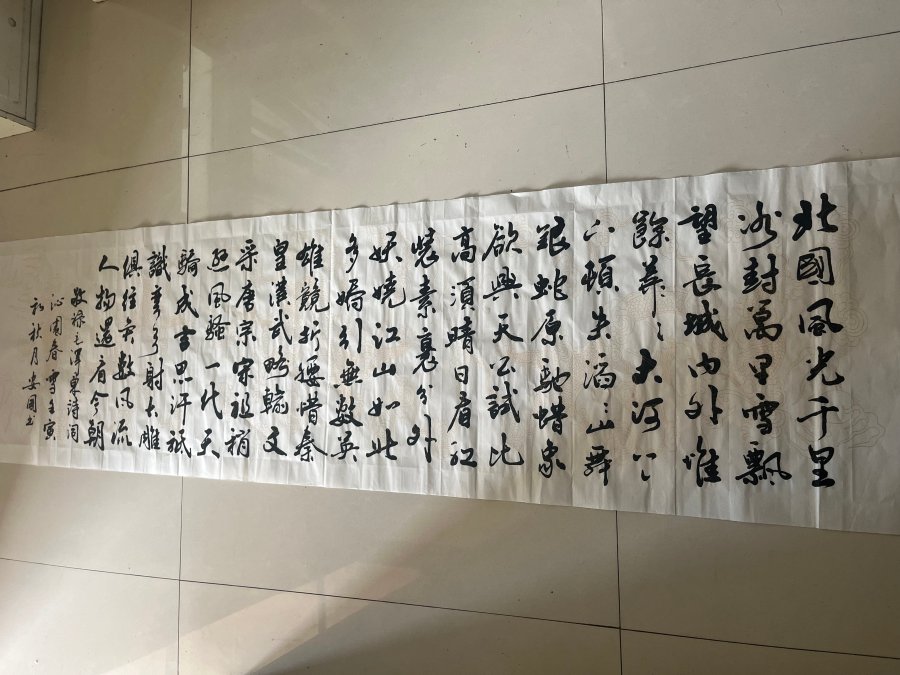 北國風光千里
冰封萬里雪飄
望長城内外惟
餘莽〻大河上
下頓失滔〻山舞
銀蛇原馳蜡象
欲與天公試比
高須晴日看紅
裝素裹分外
妖嬈江山如此
多嬌引無數英
雄競折腰惜秦
皇漢武略輸文
采唐宗宋祖稍
遜風騷一代天
驕成吉思汗祇
識彎弓射大雕
俱往矣數風流
人物還看今朝
敬録毛澤東詩詞
沁園春雪壬寅
初秋月安國书